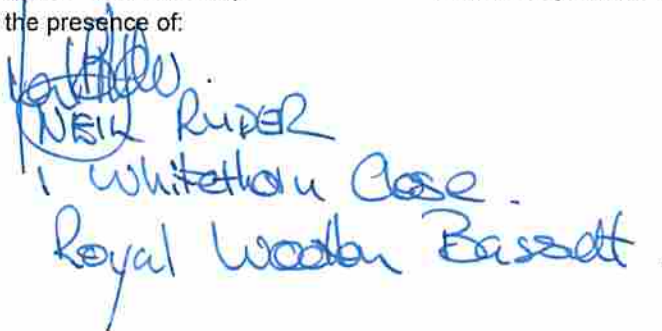 the presence of:
NEIL RUDER
1 Whitethorn Close.
Royal Wootton Bassett